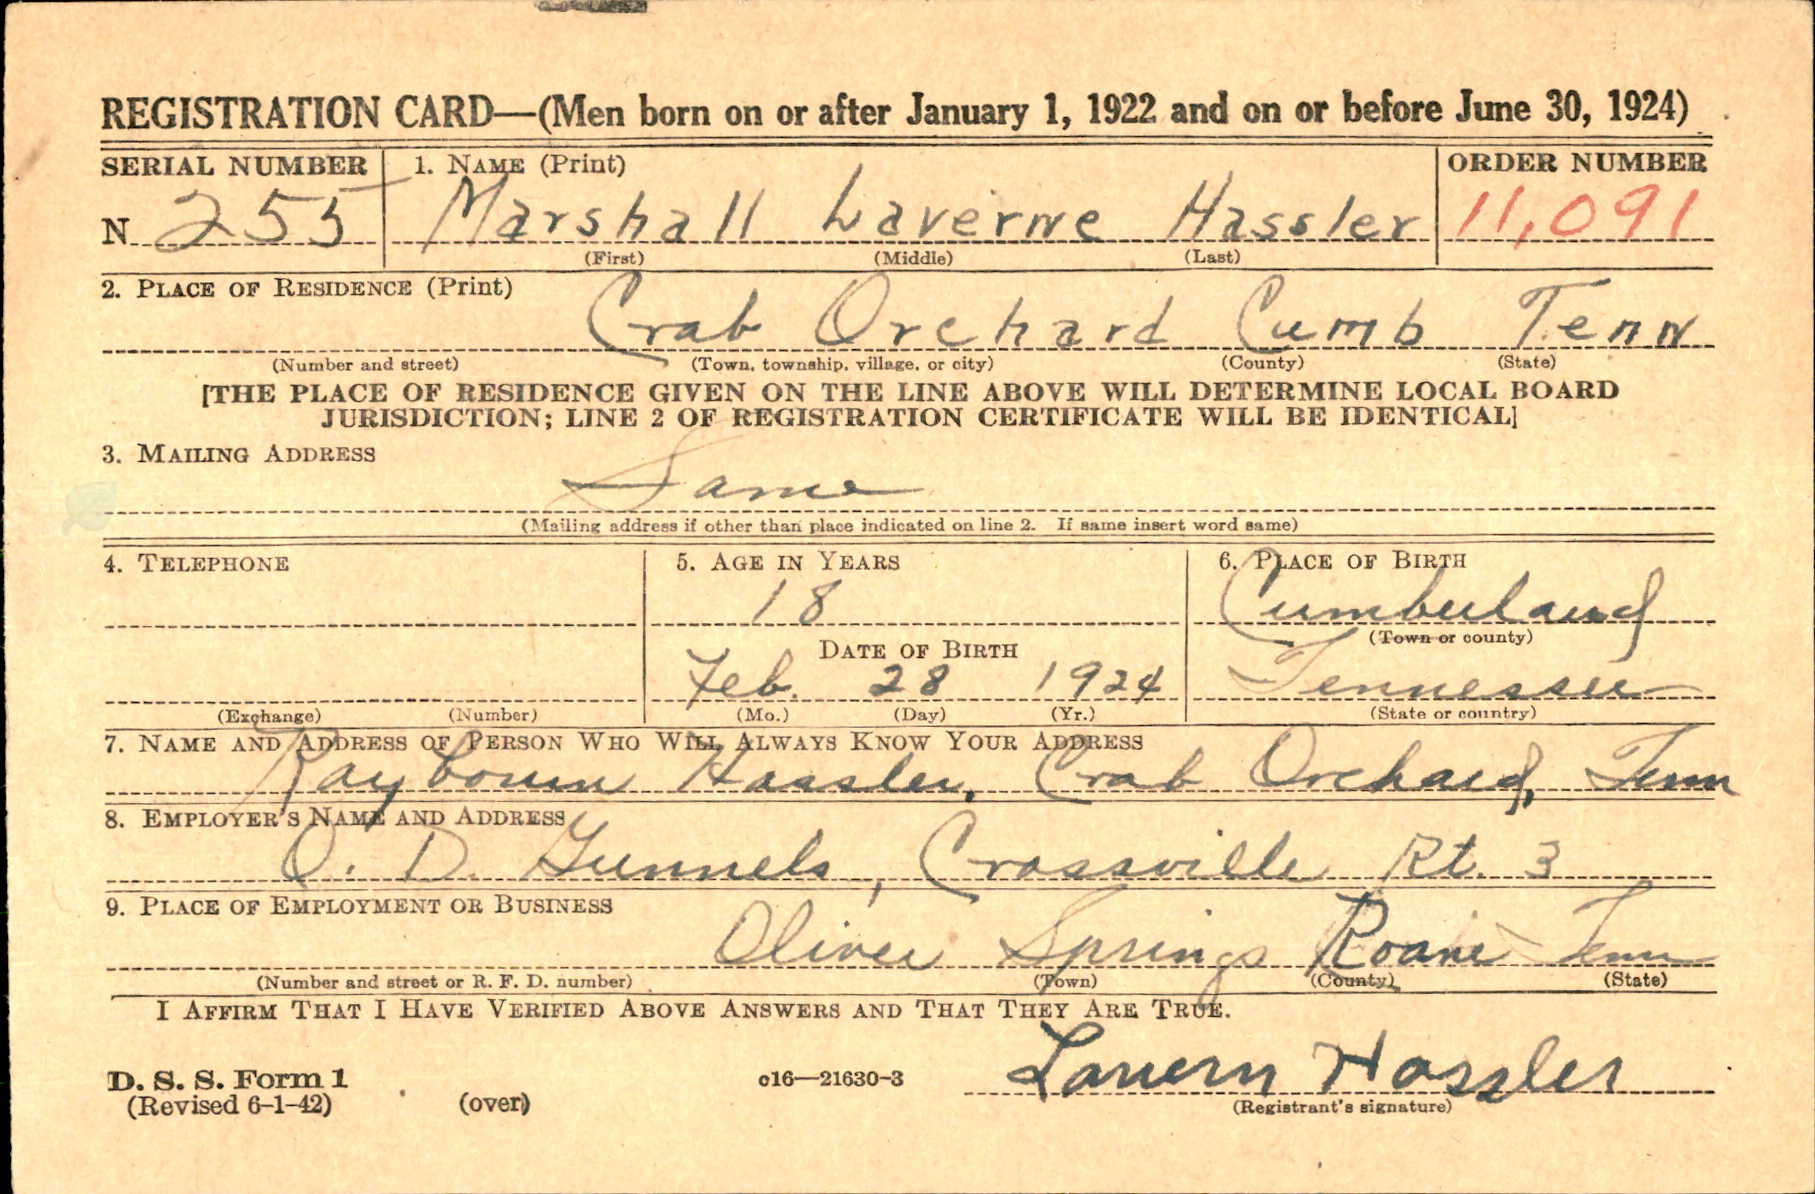 REGISTRATION CARD—(Men born on or after January 1, 1922 and on or before June 30, 1924)
SERIAL NUMBER 1. NAME (Print) ORDER NUMBER
N 255 Marshall Laverne Hassler 11,091
(First) (Middle) (Last)
2. PLACE OF RESIDENCE (Print)
Crab Orchard Cumb Tenn
(Number and street) (Town, township, village, or city) (County) (State)
[THE PLACE OF RESIDENCE GIVEN ON THE LINE ABOVE WILL DETERMINE LOCAL BOARD
JURISDICTION; LINE 2 OF REGISTRATION CERTIFICATE WILL BE IDENTICAL]
3. MAILING ADDRESS
Same
(Mailing address if other than place indicated on line 2. If same insert word same)
4. TELEPHONE 5. AGE IN YEARS 6. PLACE OF BIRTH
18 Cumberland
(Town or county)
DATE OF BIRTH
Feb. 28 1924 Tennessee
(Exchange) (Number) (Mo.) (Day) (Yr.) (State or country)
7. NAME AND ADDRESS OF PERSON WHO WILL ALWAYS KNOW YOUR ADDRESS
Raybourn Hassler, Crab Orchard, Tenn
8. EMPLOYER'S NAME AND ADDRESS
O. D. Gunnels, Crossville Rt. 3
9. PLACE OF EMPLOYMENT OR BUSINESS
Oliver Springs Roane Tenn
(Number and street or R. F. D. number) (Town) (County) (State)
I AFFIRM THAT I HAVE VERIFIED ABOVE ANSWERS AND THAT THEY ARE TRUE.
Lauern Hassler
D. S. S. Form 1 c16—21630-3
(Revised 6-1-42) (over) (Registrant's signature)